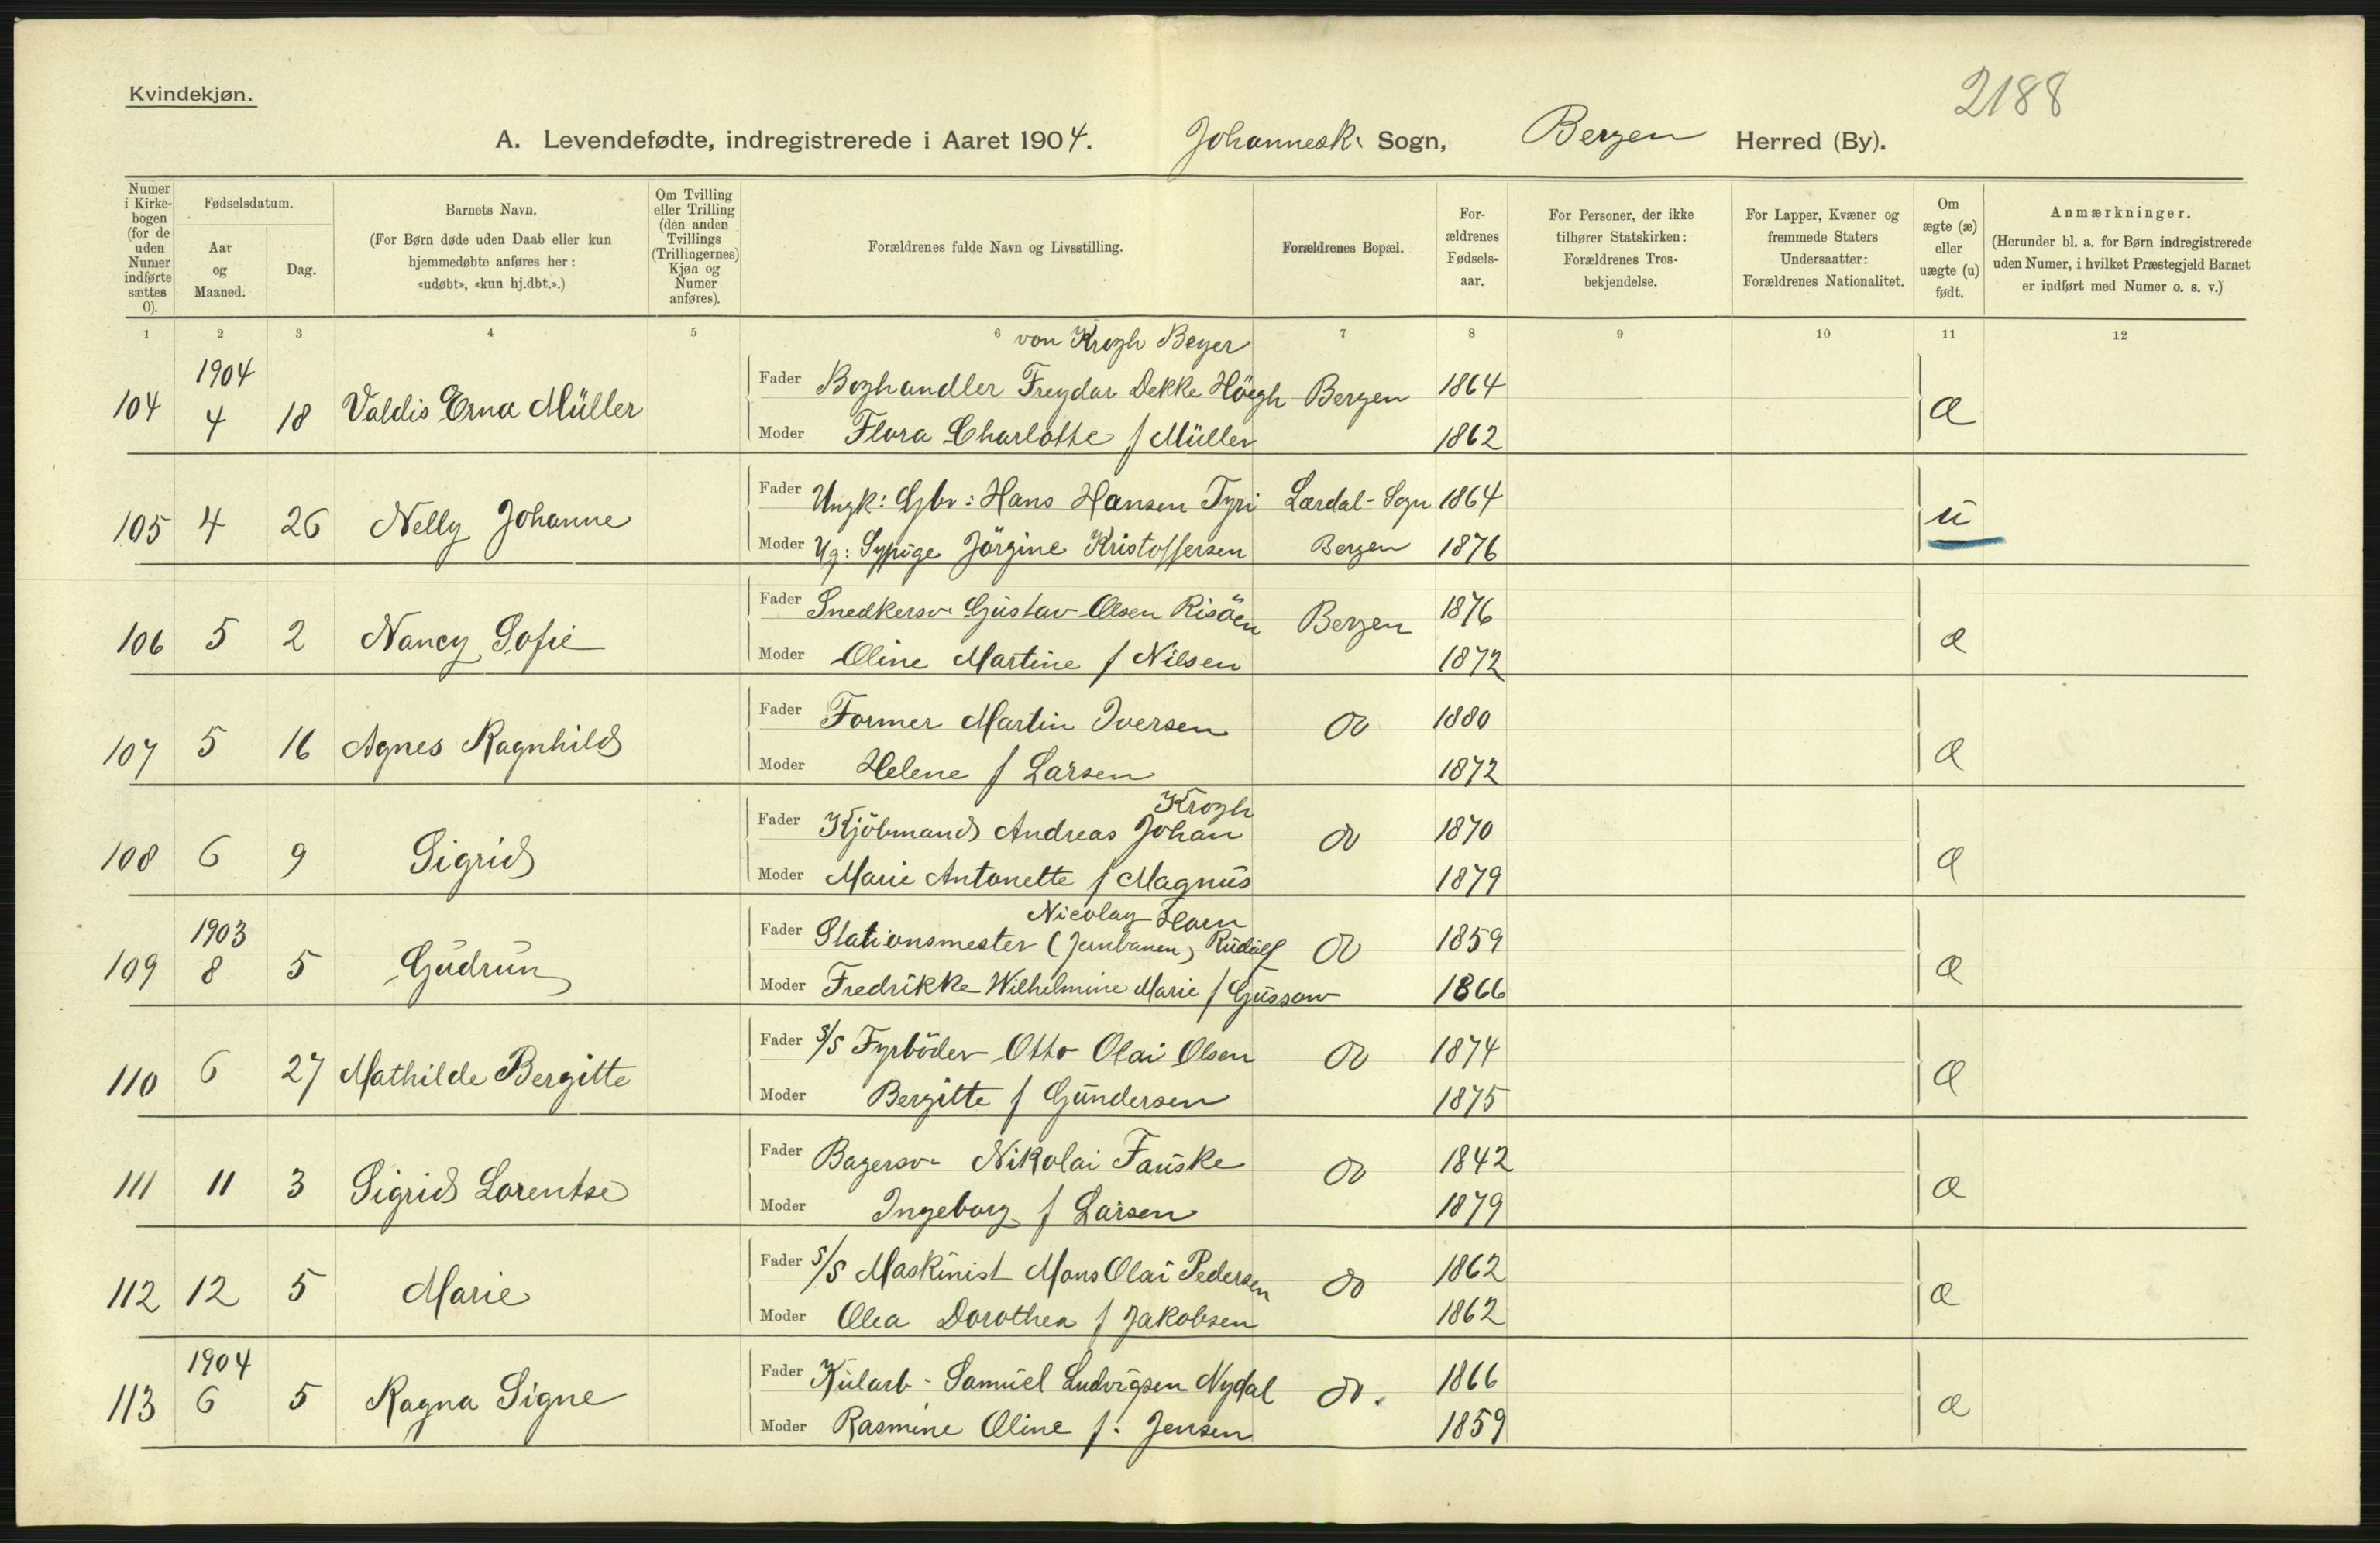 2188
Kvindekjøn.
A. Levendefødte, indregistrerede i Aaret 1904. Johannesk: Sogn, Bergen Herred (By).
Numer i Kirkebogen (for de uden Numer indførte sættes 0).
Fødselsdatum.
Aar og Maaned.
Dag.
Barnets Navn.
(For Børn døde uden Daab eller kun hjemmedøbte anføres her: «udøbt», «kun hj.dbt.».)
Om Tvilling eller Trilling (den anden Tvillings (Trillingernes) Kjøn og Numer anføres).
Forældrenes fulde Navn og Livsstilling.
Forældrenes Bopæl.
Forældrenes Fødselsaar.
For Personer, der ikke tilhører Statskirken: Forældrenes Trosbekjendelse.
For Lapper, Kvæner og fremmede Staters Undersaatter: Forældrenes Nationalitet.
Om ægte (æ) eller uægte (u) født.
Anmærkninger.
(Herunder bl. a. for Børn indregistrerede uden Numer, i hvilket Præstegjeld Barnet er indført med Numer o. s. v.)
1 2 3 4 5 6 7 8 9 10 11 12
von Krogh Beyer
1904
104 4 18 Valdis Erna Müller Fader Boghandler Freydar Dekke Høegh Bergen 1864 æ
Moder Flora Charlotte f Müller 1862
105 4 26 Nelly Johanne Fader Ungk: Gbr: Hans Hansen Tyri Lærdal-Sogn 1864 u
Moder Ug: Sypige Jörgine Kristoffersen Bergen 1876
106 5 2 Nancy Sofie Fader Snedkersv. Gustav Olsen Risöen Bergen 1876 æ
Moder Oline Martine f Nilsen 1872
107 5 16 Agnes Ragnhild Fader Former Martin Iversen do 1880 æ
Moder Helene f Larsen 1872
Krogh
108 6 9 Sigrid Fader Kjöbmand Andreas Johan do 1870 æ
Moder Marie Antonette f Magnus 1879
1903 Nicolay Horn
109 8 5 Gudrun Fader Stationsmester (Jernbanen) Rudolf do 1859 æ
Moder Fredrikke Wilhelmine Marie f Gussow 1866
110 6 27 Mathilde Bergitte Fader S/S Fyrböder Otto Olai Olsen do 1874 æ
Moder Bergitte f Gundersen 1875
111 11 3 Sigrid Lorentse Fader Bagersv. Nikolai Fauske do 1842 æ
Moder Ingeborg f Larsen 1879
112 12 5 Marie Fader S/S Maskinist Mons Olai Pedersen do 1862 æ
Moder Olea Dorothea f Jakobsen 1862
1904
113 6 5 Ragna Signe Fader Kularb. Samuel Ludvigsen Nydal do. 1866 æ
Moder Rasmine Oline f. Jensen 1859